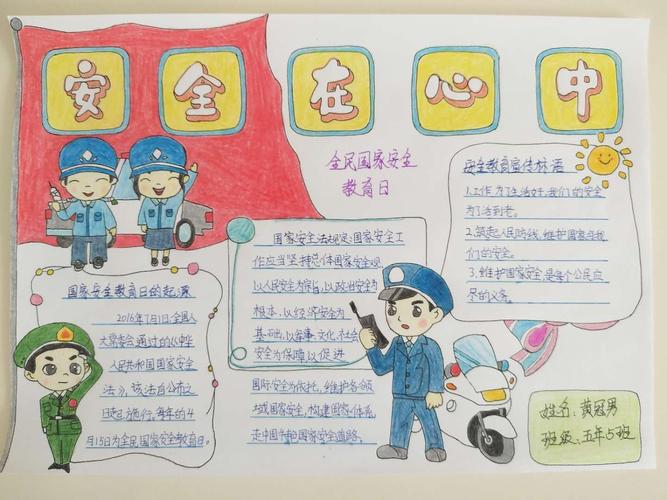 安全在心中
全民国家安全
教育日
安全教育宣传标语
1.工作为了生活好,我们的安全
为了活到老。
2.筑起人民防线,维护国家与我
们的安全。
3.维护国家安全,是每个公民应
尽的义务。
国家安全法规定:国家安全工
作应当坚持总体国家安全观
以人民安全为宗旨,以政治安全为
根本,以经济安全为
基础,以军事,文化,社会
安全为保障以促进
国际安全为依托,维护各领
域国家安全,构建国家体系,
走中国特色国家安全道路。
国家安全教育日的起源
2016年7月1日全国人
大常委会通过的《中华
人民共和国国家安全
法》,该法自公布之
日起施行,每年的4
月15日为全民国家安全教育日。
姓名:黄冠男
班级:五年5班